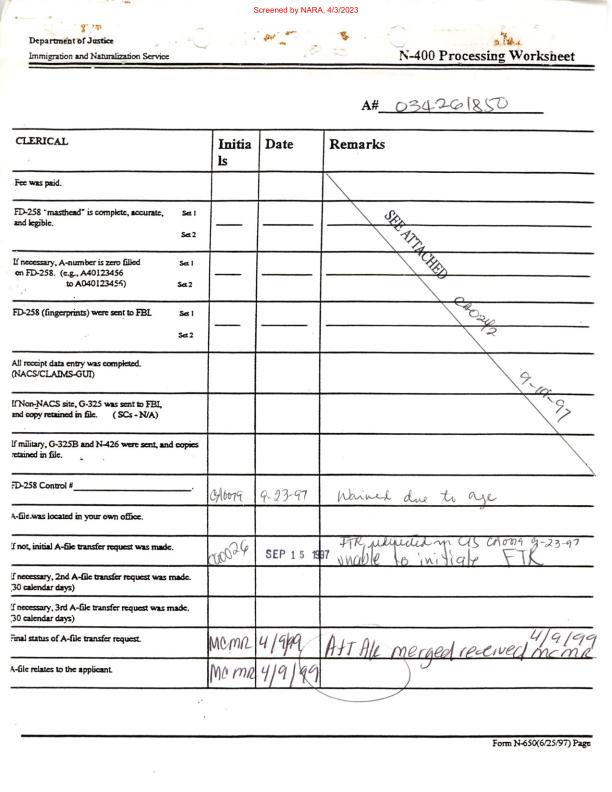 Screened by NARA, 4/3/2023
Department of Justice
Immigration and Naturalization Service
N-400 Processing Worksheet
A# 034261850
CLERICAL
Initia
ls
Date
Remarks
Fee was paid.
FD-258 "masthead" is complete, accurate, Set 1
and legible.
Set 2
SEE ATTACHED
If necessary, A-number is zero filled Set 1
on FD-258. (e.g., A40123456
to A040123456) Set 2
FD-258 (fingerprints) were sent to FBI. Set 1
Set 2
All receipt data entry was completed.
(NACS/CLAIMS-GUI)
If Non-NACS site, G-325 was sent to FBI,
and copy retained in file. (SCs - N/A)
If military, G-325B and N-426 were sent, and copies
retained in file.
FD-258 Control #
9-23-97 Waived due to age
A-file was located in your own office.
If not, initial A-file transfer request was made.
SEP 15 1997
FTR rejected in CIS 9-23-97
unable to initiate FTR
If necessary, 2nd A-file transfer request was made.
(30 calendar days)
If necessary, 3rd A-file transfer request was made.
(30 calendar days)
Final status of A-file transfer request.
MCMR 4/9/99 merged received 4/9/99
mcmr
A-file relates to the applicant.
MCMR 4/9/99
Form N-650(6/25/97) Page